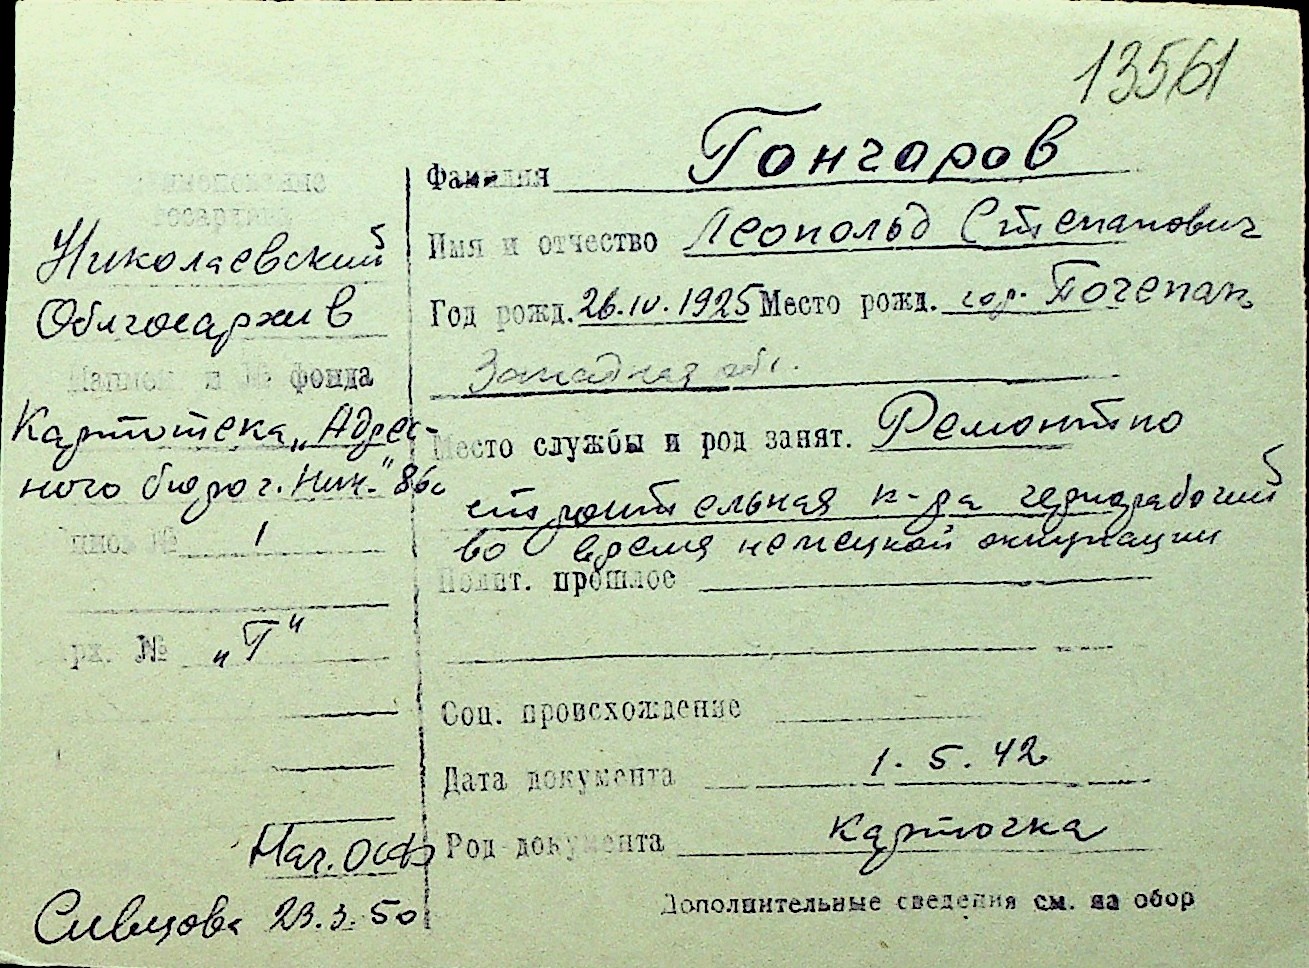 13561
Наименование
госархива
Николаевский
Облгосархив
фонда
Картотека „Адрес-
ного бюро г. Ник.“ 86с
№ 1
№ „Г“
Нач. ОСФ
Сивцова 23.3.50
Фамилия Гончаров
Имя и отчество Леопольд Степанович
Год рожд. 26.IV.1925 Место рожд. гор. Почепап
Западная обл.
Место службы и род занят. Ремонтно
строительная к-ра чернорабочий
во время немецкой оккупации
Полит. прошлое
Соц. происхождение
Дата документа 1.5.42
Род документа карточка
Дополнительные сведения см. на обор